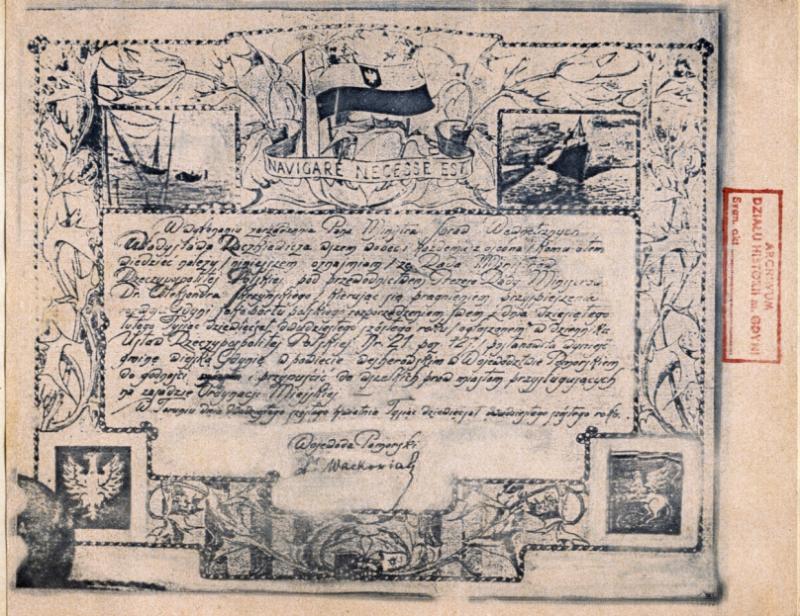 NAVIGARE NECESSE EST.
W wykonaniu zarządzenia Pana Ministra Spraw Wewnętrznych
Władysława Raczkiewicza wszem wobec i każdemu z osobna, komu o tem
wiedzieć należy, niniejszem oznajmiam, że Rada Ministrów
Rzeczypospolitej Polskiej pod przewodnictwem Prezesa Rady Ministrów
Dr. Aleksandra Skrzyńskiego, kierując się pragnieniem przyspieszenia
Gdyni jako portu polskiego rozporządzeniem swem z dnia dziesiątego
lutego tysiąc dziewięćset dwudziestego szóstego roku, ogłoszonem w dzienniku
Ustaw Rzeczypospolitej Polskiej Nr. 21 poz. 127, postanowiła wynieść
gminę wiejską Gdynię w powiecie wejherowskim w Województwie Pomorskiem
do godności i przypuścić do wszelkich praw miastom przysługujących
na zasadzie Ordynacji Miejskiej.
W Toruniu dnia dwudziestego szóstego kwietnia tysiąc dziewięćset dwudziestego szóstego roku.
Wojewoda Pomorski
Dr Wachowiak
ARCHIWUM
DZIAŁU HISTORII m. GDYNI
Sygn. akt